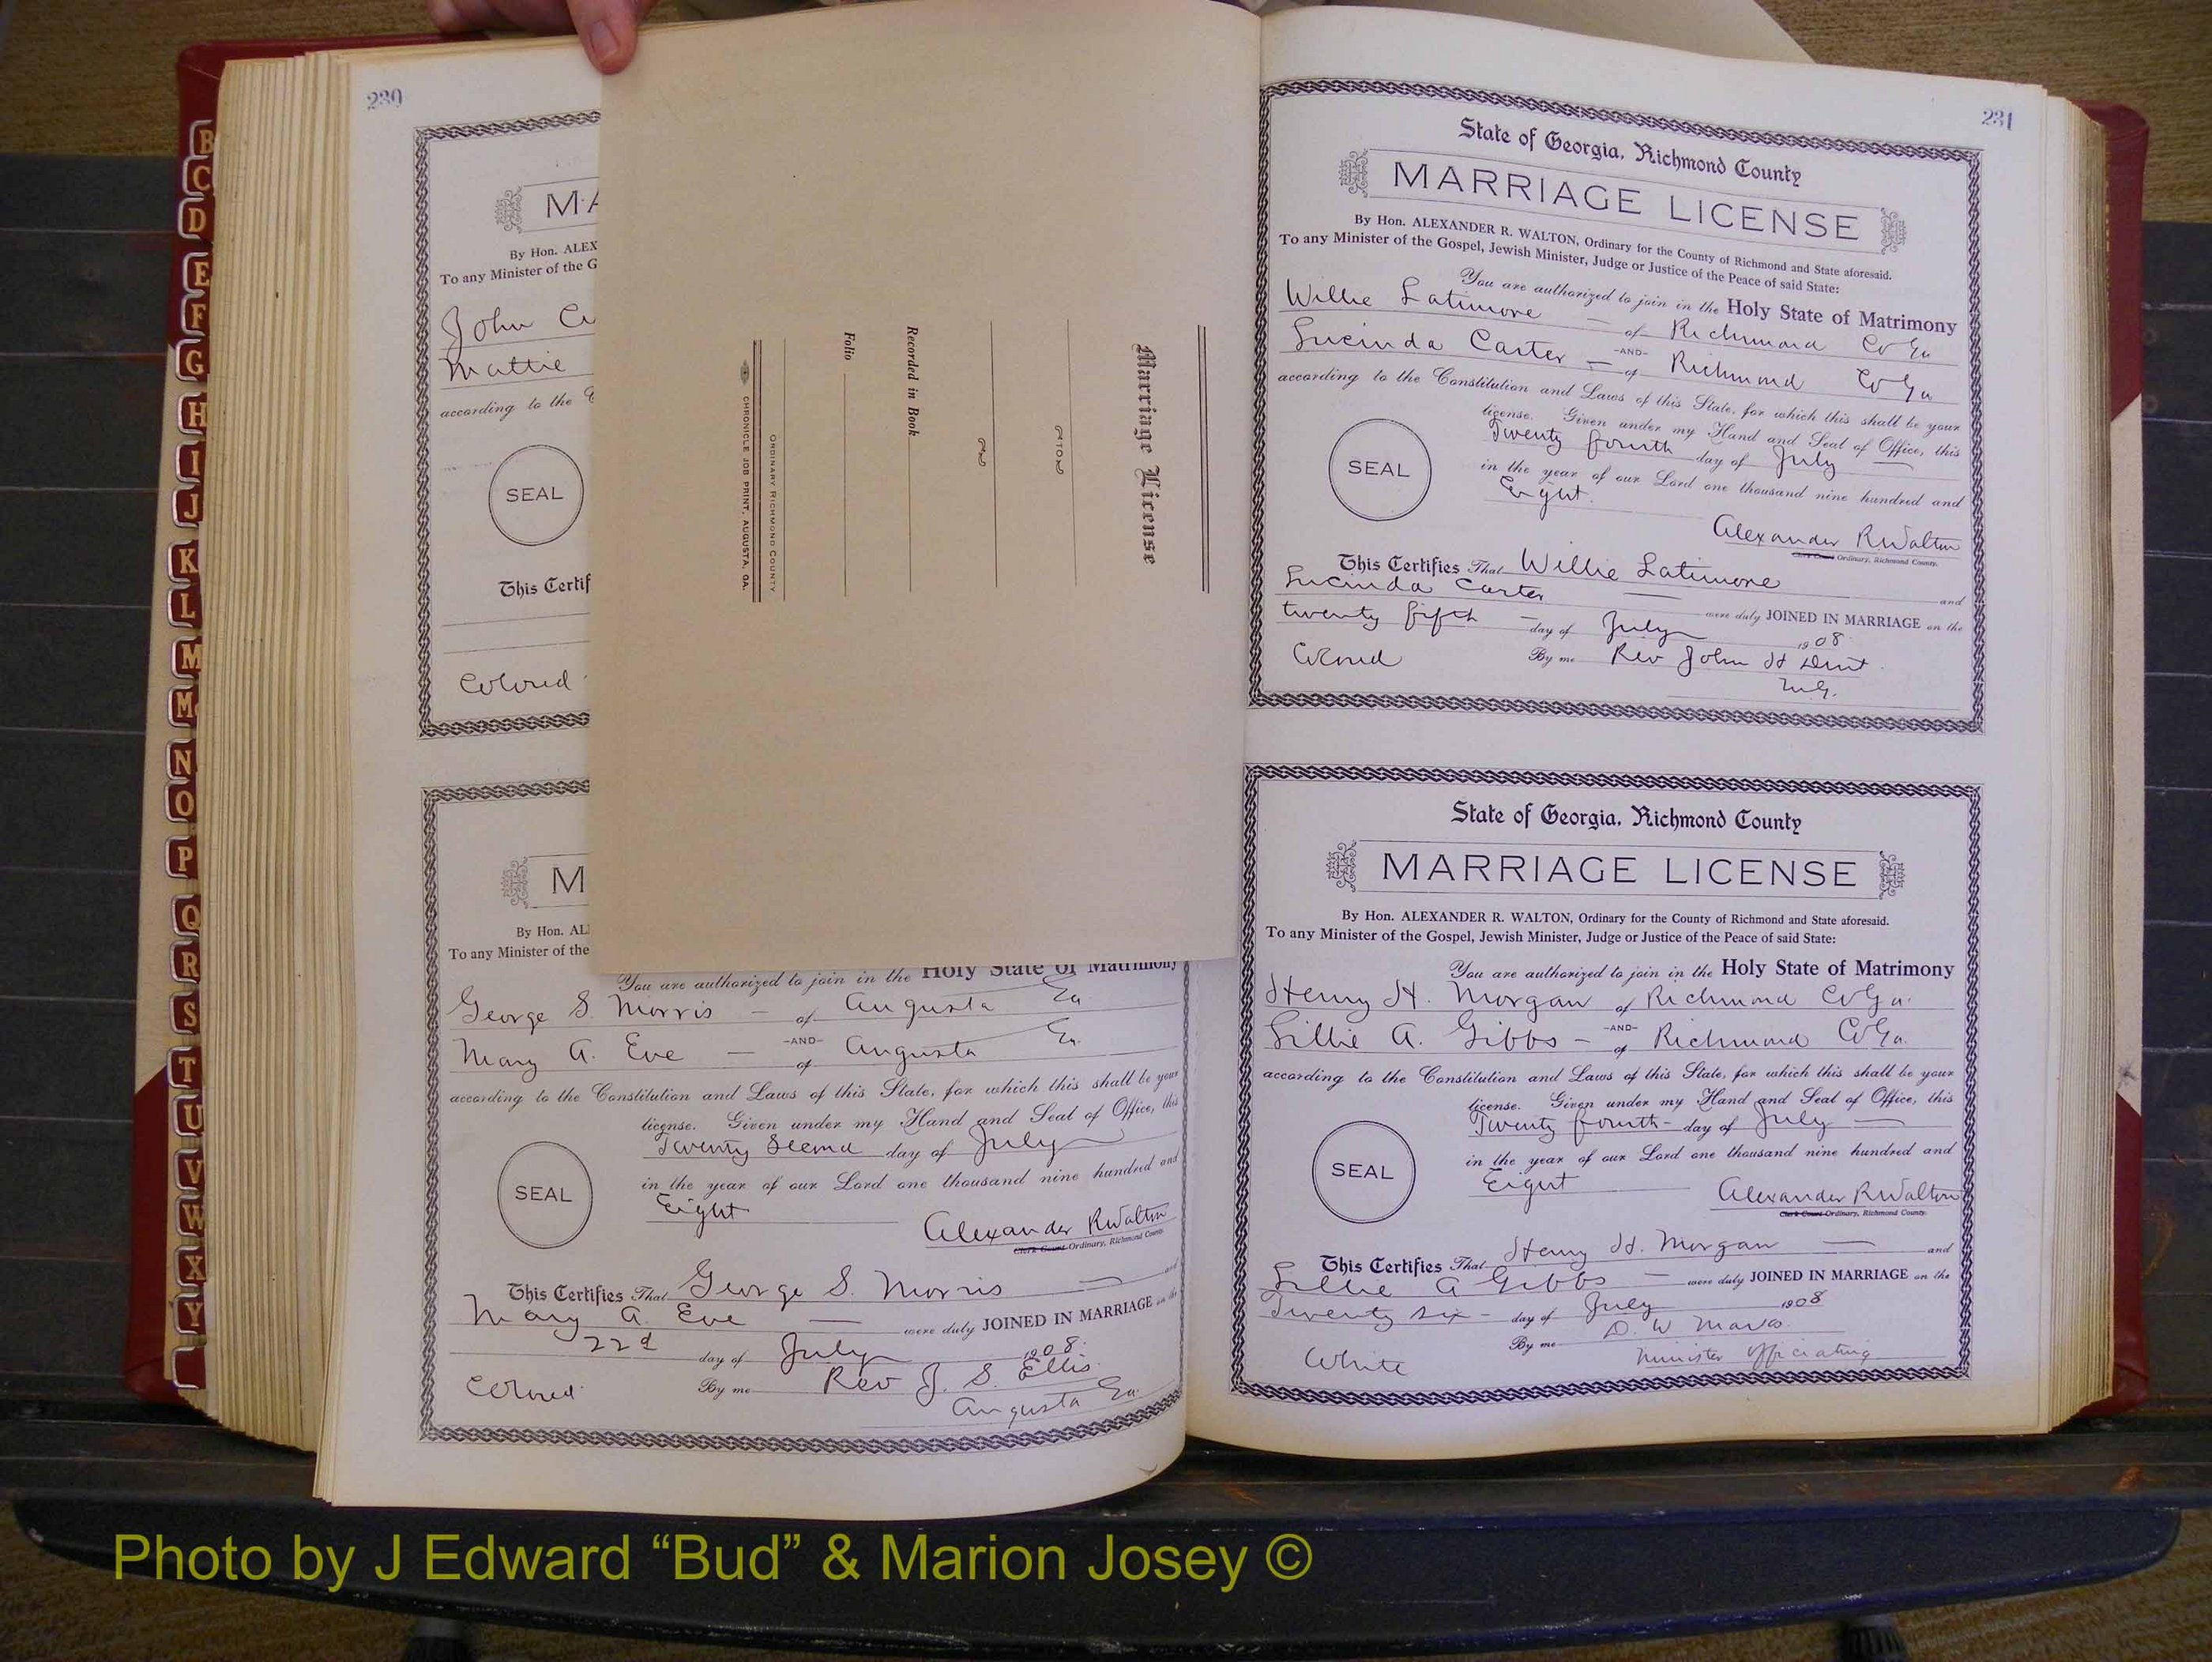 B
C
D
E
F
G
H
I
J
K
L
M
Mc
N
O
P
Q
R
S
T
U
V
W
X
Y
230
MA
By Hon. ALEX
To any Minister of the G
John
Mattie
according to the
SEAL
This Certif
Colored
M
By Hon. AL
To any Minister of the
You are authorized to join in the Holy State of Matrimony
George S. Morris - of Augusta Ga.
-AND-
Mary A. Eve - of Augusta Ga.
according to the Constitution and Laws of this State, for which this shall be your
license. Given under my Hand and Seal of Office, this
Twenty Second day of July
in the year of our Lord one thousand nine hundred and
Eight
SEAL
Alexander R Walton
Clerk Court Ordinary, Richmond County.
This Certifies That George S. Morris and
Mary A. Eve were duly JOINED IN MARRIAGE on the
22d day of July 1908.
Colored By me Rev J. S. Ellis
Augusta Ga.
Marriage License
TO
Recorded in Book
Folio
ORDINARY RICHMOND COUNTY
CHRONICLE JOB PRINT, AUGUSTA, GA.
231
State of Georgia, Richmond County
MARRIAGE LICENSE
By Hon. ALEXANDER R. WALTON, Ordinary for the County of Richmond and State aforesaid.
To any Minister of the Gospel, Jewish Minister, Judge or Justice of the Peace of said State:
You are authorized to join in the Holy State of Matrimony
Willie Latimore - of Richmond Co Ga
-AND-
Lucinda Carter - of Richmond Co Ga
according to the Constitution and Laws of this State, for which this shall be your
license. Given under my Hand and Seal of Office, this
Twenty fourth day of July
in the year of our Lord one thousand nine hundred and
Eight.
SEAL
Alexander R Walton
Clerk Court Ordinary, Richmond County.
This Certifies That Willie Latimore and
Lucinda Carter were duly JOINED IN MARRIAGE on the
twenty fifth day of July 1908
Colored By me Rev John H Dent.
M.G.
State of Georgia, Richmond County
MARRIAGE LICENSE
By Hon. ALEXANDER R. WALTON, Ordinary for the County of Richmond and State aforesaid.
To any Minister of the Gospel, Jewish Minister, Judge or Justice of the Peace of said State:
You are authorized to join in the Holy State of Matrimony
Henry H. Morgan of Richmond Co Ga.
-AND-
Lillie A. Gibbs - of Richmond Co Ga.
according to the Constitution and Laws of this State, for which this shall be your
license. Given under my Hand and Seal of Office, this
Twenty fourth - day of July
in the year of our Lord one thousand nine hundred and
Eight
SEAL
Alexander R Walton
Clerk Court Ordinary, Richmond County.
This Certifies That Henry H. Morgan and
Lillie A Gibbs were duly JOINED IN MARRIAGE on the
Twenty six - day of July 1908
By me D. W
White Minister Officiating
Photo by J Edward “Bud” & Marion Josey ©